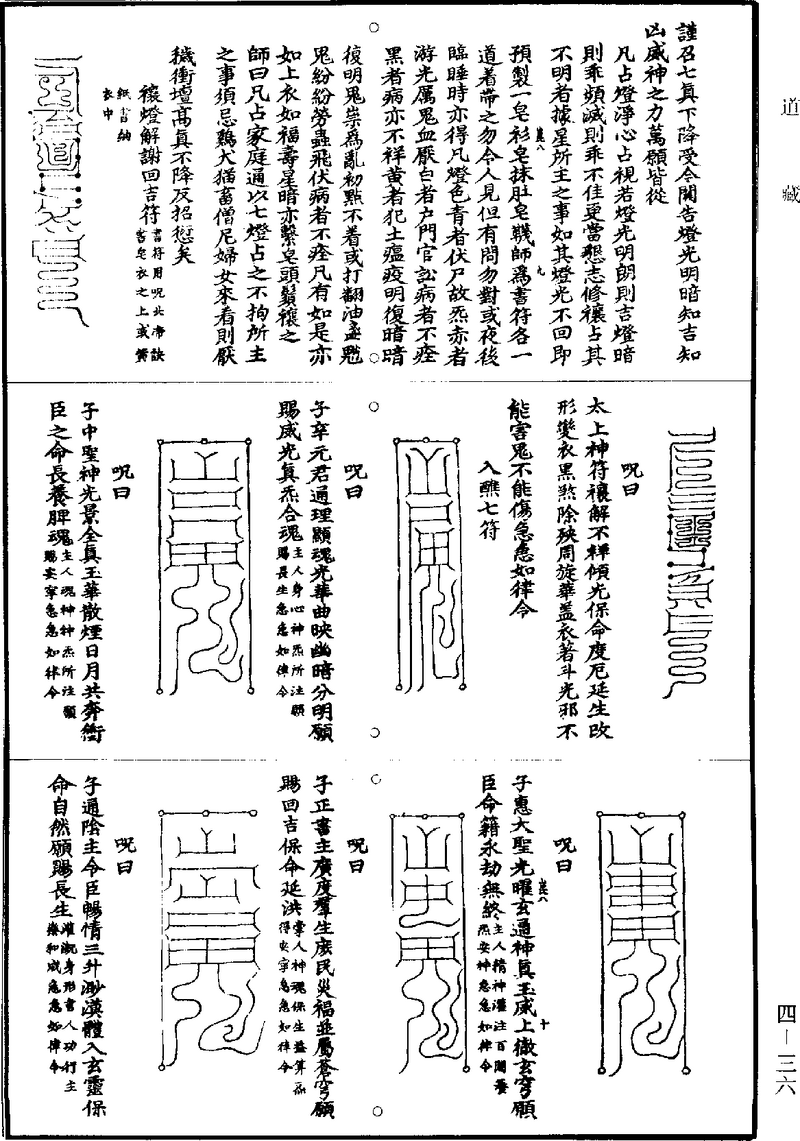 道藏
謹召七真下降受今關告燈光明暗知吉知
凶威神之力萬願皆從
凡占燈淨心占視若燈光明朗則吉燈暗
則乖頻滅則乖不住更當懇志修禳占其
不明者據星所主之事如其燈光不回即
預製一皂衫皂抹肚皂韈師爲書符各一
道着帶之勿令人見但有問勿對或夜後
臨睡時亦得凡燈色青者伏尸故炁赤者
游光厲鬼血厭白者户門官訟病者不痊
黑者病亦不祥黄者犯土瘟疫明復暗暗
復明鬼祟爲亂初㸃不着或打翻油盞魁
鬼紛紛勞蟲飛伏病者不痊凡有如是亦
如上衣如福壽星暗亦繫皂頭鬚禳之
師曰凡占家庭通以七燈占之不拘所主
之事須忌鷄犬猫畜僧尼婦女來看則厭
穢衝壇髙真不降反招愆矣
禳燈解謝回吉符
書符用呪北帝訣
書皂衣之上或黄
紙書納
衣中
呪曰
太上神符禳解不祥傾光保命度厄延生改
形變衣黑煞除殃周旋華盖衣著斗光邪不
能害鬼不能傷急急如律令
入醮七符
呪曰
子卒元君通理顯魂光華曲映幽暗分明願
賜威光真炁合魂主人身心神炁所注願
賜長生急急如律令
呪曰
子中聖神光景全真玉華散煙日月共奔衝
臣之命長養脾魂主人魂神炁所注願
賜安寧急急如律令
呪曰
子惠大聖光曜玄通神真玉威上徹玄穹願
臣命籍永劫無終主人精神灌注百關養
炁安神急急如律令
呪曰
子正書主廣度羣生庶民災福並屬蒼穹願
賜回吉保命延洪掌人神魂保生益算
得安寧急急如律令
呪曰
子通陰主令臣暢情三升渺漠體入玄靈保
命自然願賜長生
四－三六